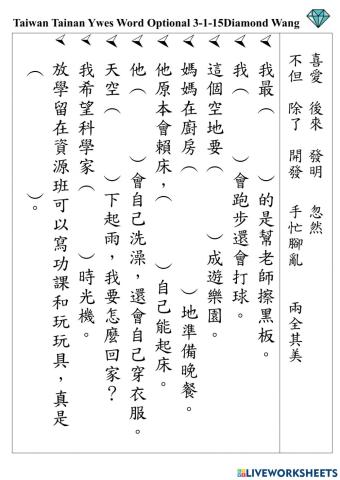 Taiwan Tainan Ywes Word Optional 3-1-15Diamond Wang
喜愛 後來 發明 忽然
不但 除了 開發 手忙腳亂 兩全其美
我最（ ）的是幫老師擦黑板。
我（ ）會跑步還會打球。
這個空地要（ ）成遊樂園。
媽媽在廚房（ ）地準備晚餐。
他原本會賴床，（ ）自己能起床。
他（ ）會自己洗澡，還會自己穿衣服。
天空（ ）下起雨，我要怎麼回家？
我希望科學家（ ）時光機。
放學留在資源班可以寫功課和玩玩具，真是
（ ）。
LIVEWORKSHEETS